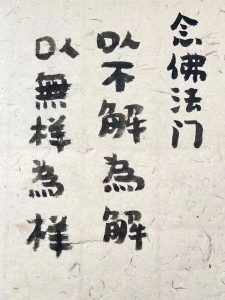 念佛法门
以不解為解
以無样為样